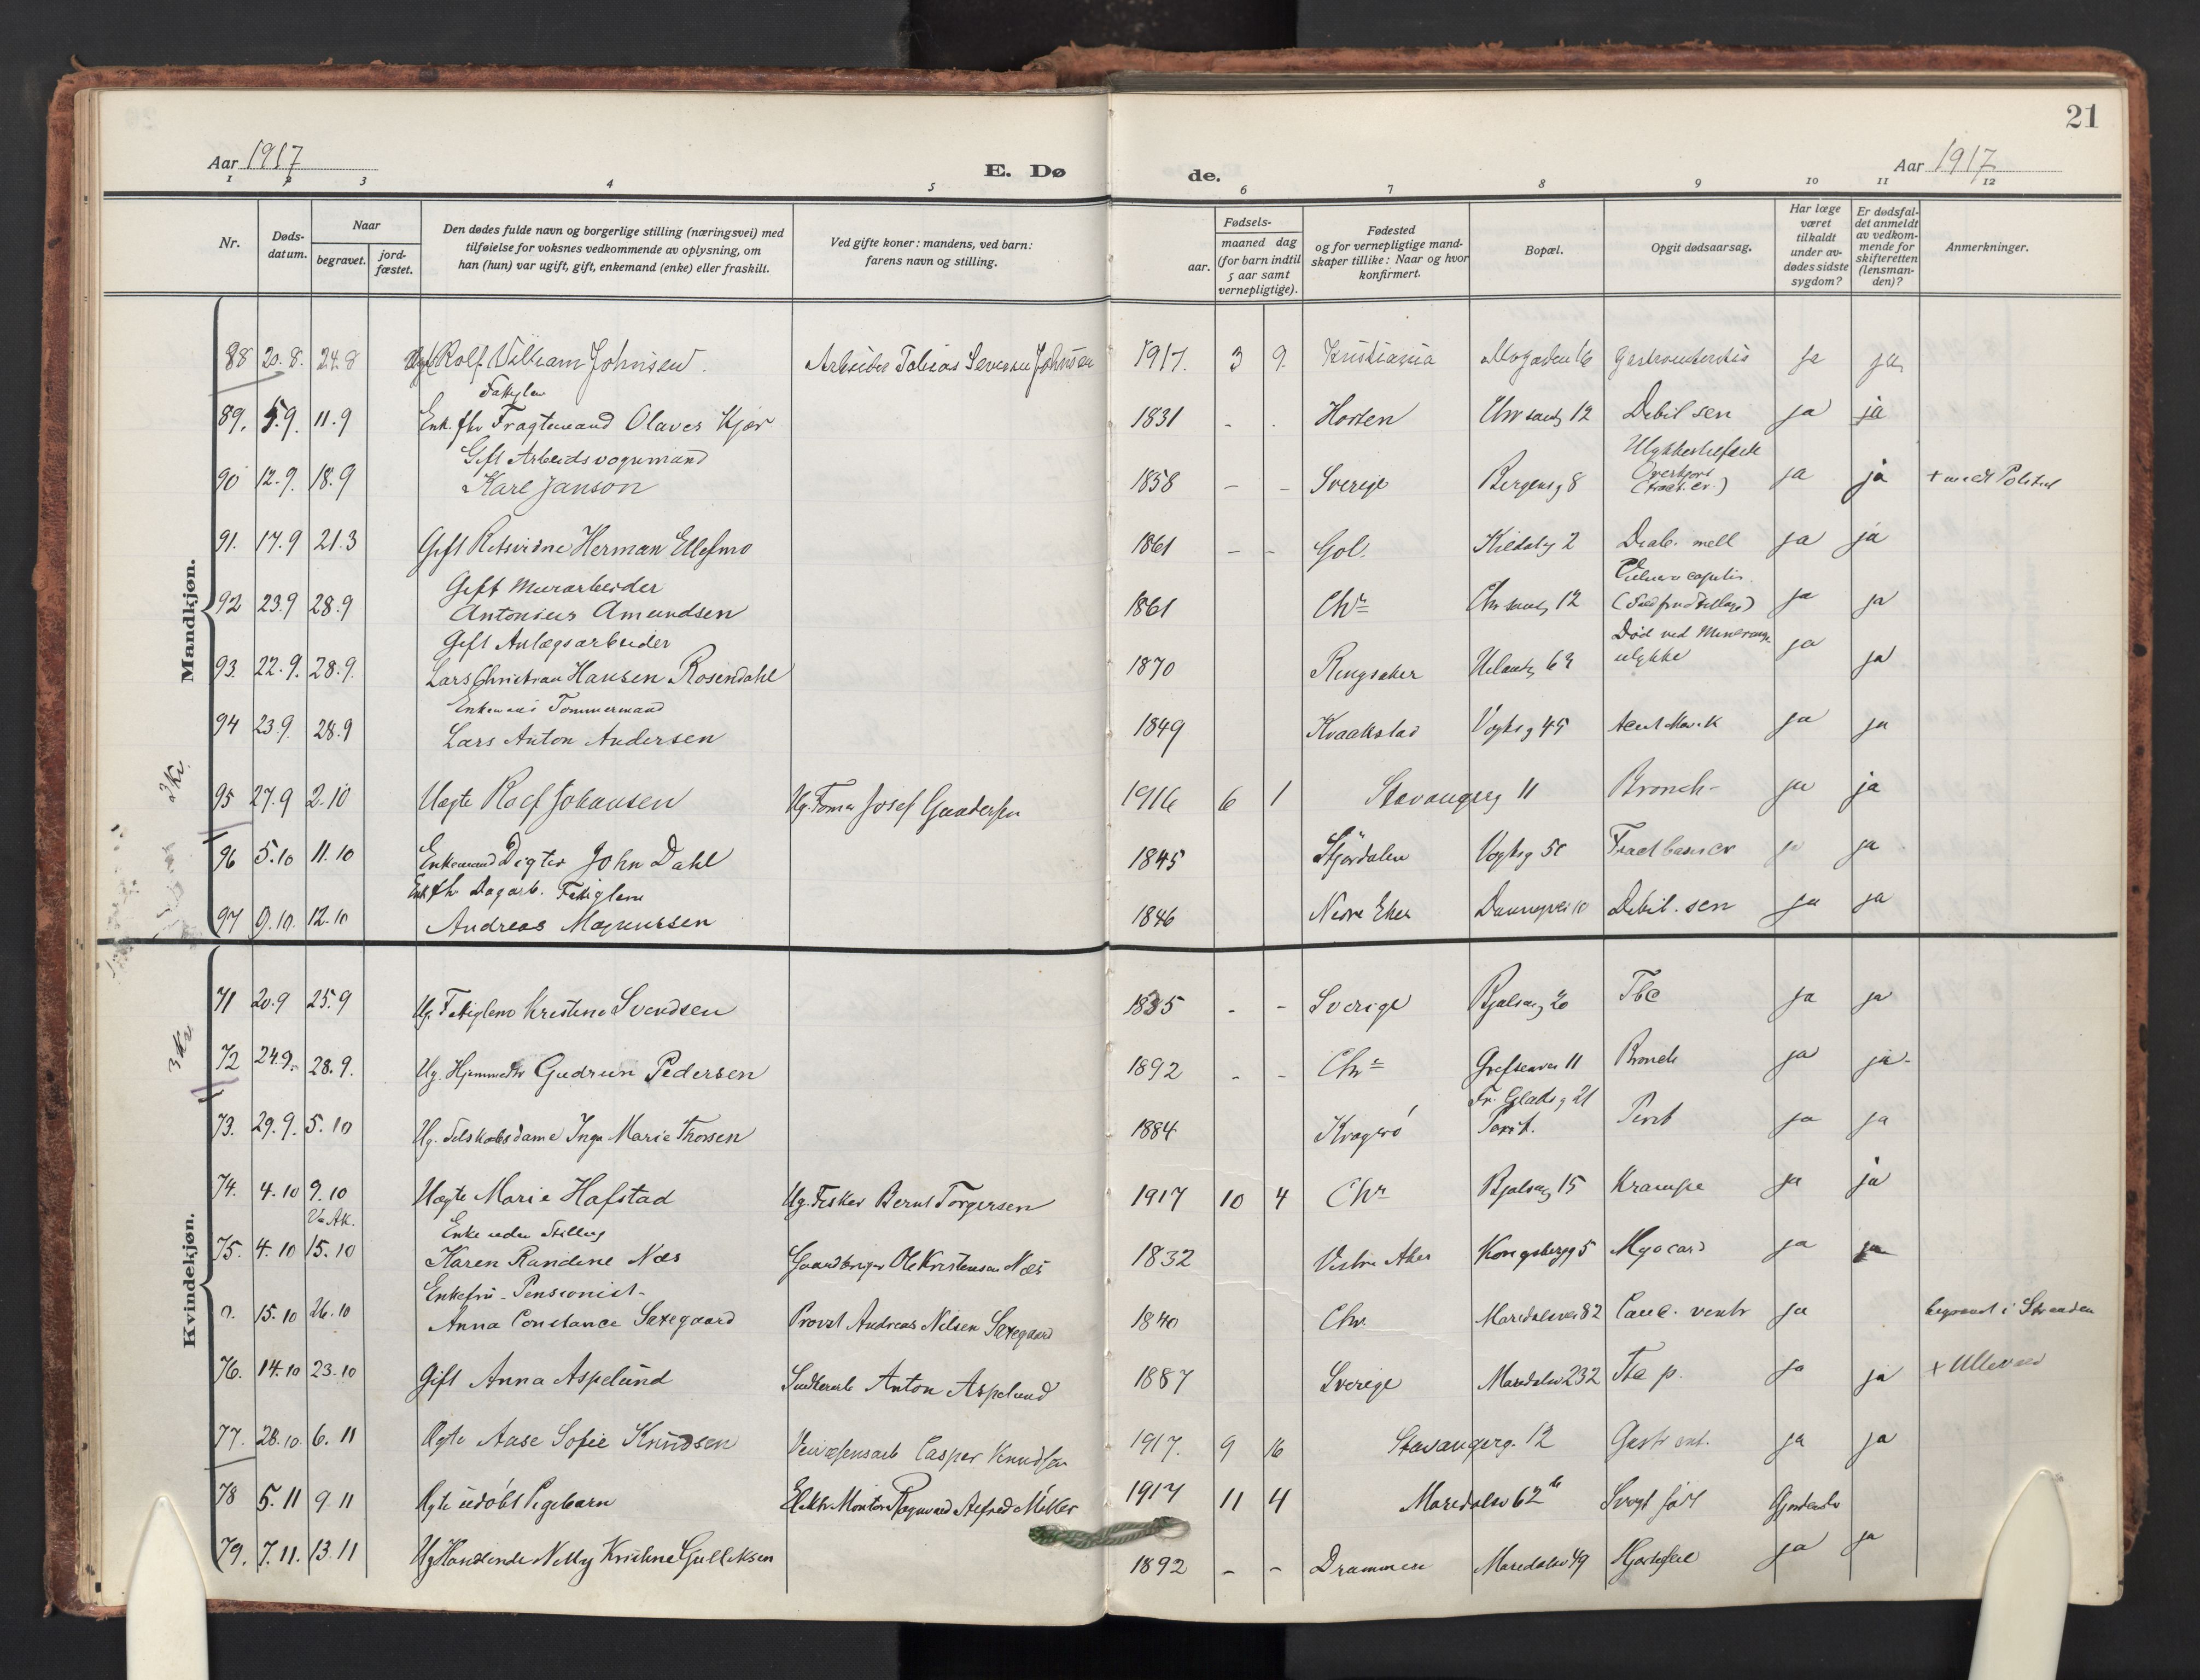 21
Aar 1917
E. Dø
de.
Aar 1917
1 2 3 4 5 6 7 8 9 10 11 12
Nr.
Døds-
datum.
Naar
begravet.
jord-
fæstet.
Den dødes fulde navn og borgerlige stilling (næringsvei) med
tilføielse for voksnes vedkommende av oplysning, om
han (hun) var ugift, gift, enkemand (enke) eller fraskilt.
Ved gifte koner: mandens, ved barn:
farens navn og stilling.
Fødsels-
aar.
maaned dag
(for barn indtil
5 aar samt
vernepligtige).
Fødested
og for vernepligtige mand-
skaper tillike: Naar og hvor
konfirmert.
Bopæl.
Opgit dødsaarsag.
Har læge
været
tilkaldt
under av-
dødes sidste
sygdom?
Er dødsfal-
det anmeldt
av vedkom-
mende for
skifteretten
(lensman-
den)?
Anmerkninger.
Mandkjøn.
88 20.8. 24.8 Rolf William Johnsen. Arbeider Tobias Severin Johnsen 1917. 3 9. Kristiania ja ja
Fattiglem
89. 5.9. 11.9 Enk. fhv Fragtemand Olaves Kjær 1831 - . Horten Chr sandg 12 Debil sen ja ja
Gift Arbeidsvognmand
90 12.9. 18.9 Karl Janson 1858 - - Sverige Bergensg 8 Overkjørt ja ja
91. 17.9 21.3 Gift Herman Ellefmo 1861 - - Gol. 2 Diab. mell ja ja
Gift Murarbeider
92 23.9 28.9 Antonius Amundsen 1861 Chr Chr sandg 12 ja ja
Gift Anlægsarbeider
93. 22.9. 28.9. Lars Christian Hansen Rosendahl 1870 Ringsaker Uelandsg Død ved Minesprængn ulykke ja ja
Tømmermand
94 23.9. 28.9 Lars Anton Andersen 1849 Kraakstad Vogtsg 45 ja ja
2 Kr.
95 27.9 2.10 Uægte Rolf Johansen Ug. Josef Gundersen 1916 6 1 Stavangerg 11 Bronch- ja ja
96 5.10 11.10 Enkemand Digter John Dahl 1845 Stjørdalen Vogtsg ja ja
Enk fh. Dagarb. Fattiglem
97 9.10. 12.10 Andreas Magnussen 1846 Nedre Eker Debil. sen ja ja
Kvindekjøn.
71 20.9 25.9 Ug. Fattiglem Kristine Svendsen 1835 - - Sverige 20 Tbc ja ja
3 Kr.
72 24.9. 28.9. Ug. Gudrun Pedersen 1892 - - Chr Grefsenvei 11 Bronch ja ja-
Fr. Gladsg 21
73. 29.9. 5.10 Ug. Selskabsdame Inga Marie Thorsen 1884 Kragerø ja ja
74. 4.10 9.10 Uægte Marie Hafstad Ug. Fisker Bernt Torgersen 1917 10 4 Chr 15 Krampe ja ja
V. Ak.
Enke uden Stilling
75. 4.10 15.10 Karen Randine Næs Gaardbruger Ole Kristensen Næs 1832 Vestre Aker Kongsbergg 5 Myocard ja ja
Enkefru - Pensionist -
a. 15.10 26.10 Anna Constance Saxegaard Provst Andreas Nilsen Saxegaard 1840 Chr. Maridalsvei 82 Canc. ventr ja begravet i
76. 14.10 23.10 Gift Anna Aspelund Anton Aspelund 1887 Sverige Maridalsv 232 Tbc p. ja ja + Ullevaal
77. 28.10. 6.11 Ægte Aase Sofie Knudsen Veivæsensarb Casper Knudsen 1917. 9 16 Stavangerg. 12 Gastr ent. ja ja
78 5.11 9.11 Ægte udøbt Pigebarn Elektr Montør Ragnvald Alfred 1917 11 4 Maridalsv 62 b Svagt født
79. 7.11. 13.11 Ug Nelly Kristine Gulliksen 1892 - - Drammen Maridalsv 49 Hjertefeil ja ja